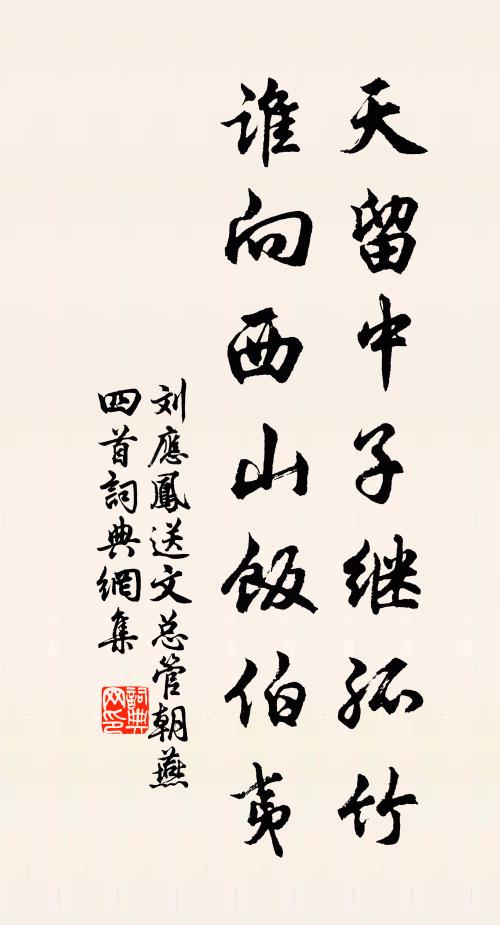 天留中子继孤竹
谁向西山饭伯夷
刘應鳳送文总管朝燕
四首詞典網集
詞典
网印